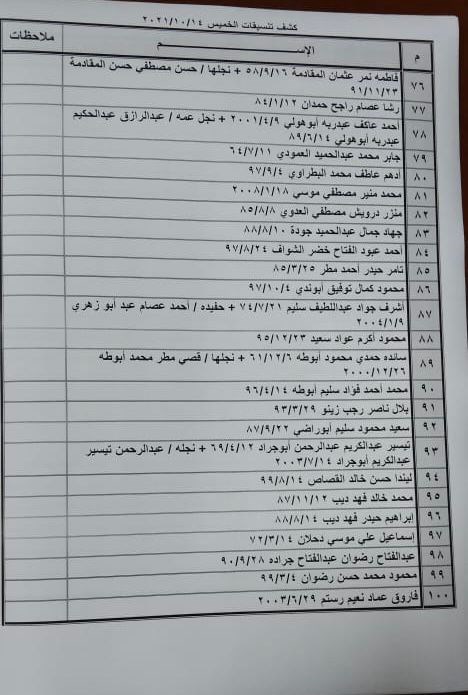 كشف تنسيقات الخميس ٢٠٢١/١٠/١٤
م الإســـــــــم ملاحظات
٧٦ فاطمه نمر عثمان المقادمة ٥٨/٩/١٦ + نجلها / حسن مصطفي حسن المقادمة
٩١/١١/٢٣
٧٧ رشا عصام راجح حمدان ٨٤/١/١٢
٧٨ أحمد عاكف عبدربه أبوهولي ٢٠٠١/٤/٩ + نجل عمه / عبدالرازق عبدالحكيم
عبدربه أبوهولي ٨٩/٦/١٤
٧٩ جابر محمد عبدالحميد العمودي ٦٤/٧/١١
٨٠ أدهم عاطف محمد البطراوي ٩٧/٩/٤
٨١ محمد منير مصطفي موسي ٢٠٠٨/١/١٨
٨٢ منزر درويش مصطفي العدوي ٨٥/٨/٨
٨٣ جهاد جمال عبدالحميد جودة ٨٨/٨/١٠
٨٤ أحمد عبود الفتاح خضر الشواف ٩٧/٨/٢٤
٨٥ تامر حيدر أحمد مطر ٨٥/٣/٢٥
٨٦ محمود كمال توفيق أبوندي ٩٧/١٠/٤
٨٧ أشرف جواد عبداللطيف سليم ٧٤/٧/٢١ + حفيده / أحمد عصام عبد أبو زهري
٢٠٠٤/١/٩
٨٨ محمود أكرم عواد سعيد ٩٥/١٢/٢٣
٨٩ سائده حمدي محمود أبوطه ٦١/١٢/٦ + نجلها / قصي مطر محمد أبوطه
٢٠٠٠/١٢/٢٦
٩٠ محمد أحمد فؤاد سليم أبوطه ٩٦/٤/١٤
٩١ بلال ناصر رجب زينو ٩٣/٣/٢٩
٩٢ سعيد محمود سليم أبوراضي ٨٧/٩/٢٢
٩٣ تيسير عبدالكريم عبدالرحمن أبوجراد ٦٩/٤/١٢ + نجله / عبدالرحمن تيسير
عبدالكريم أبوجراد ٢٠٠٣/٧/١٤
٩٤ ليندا حسن خالد القصاص ٩٩/٨/١٤
٩٥ محمد خالد فهد ديب ٨٧/١١/١٢
٩٦ إبراهيم حيدر فهد ديب ٨٨/٨/١٤
٩٧ إسماعيل علي موسي دحلان ٧٢/٣/١٤
٩٨ عبدالفتاح رضوان عبدالفتاح جراده ٩٠/٩/٢٨
٩٩ محمود محمد حسن رضوان ٩٩/٣/٤
١٠٠ فاروق عماد نعيم رستم ٢٠٠٣/٦/٢٩